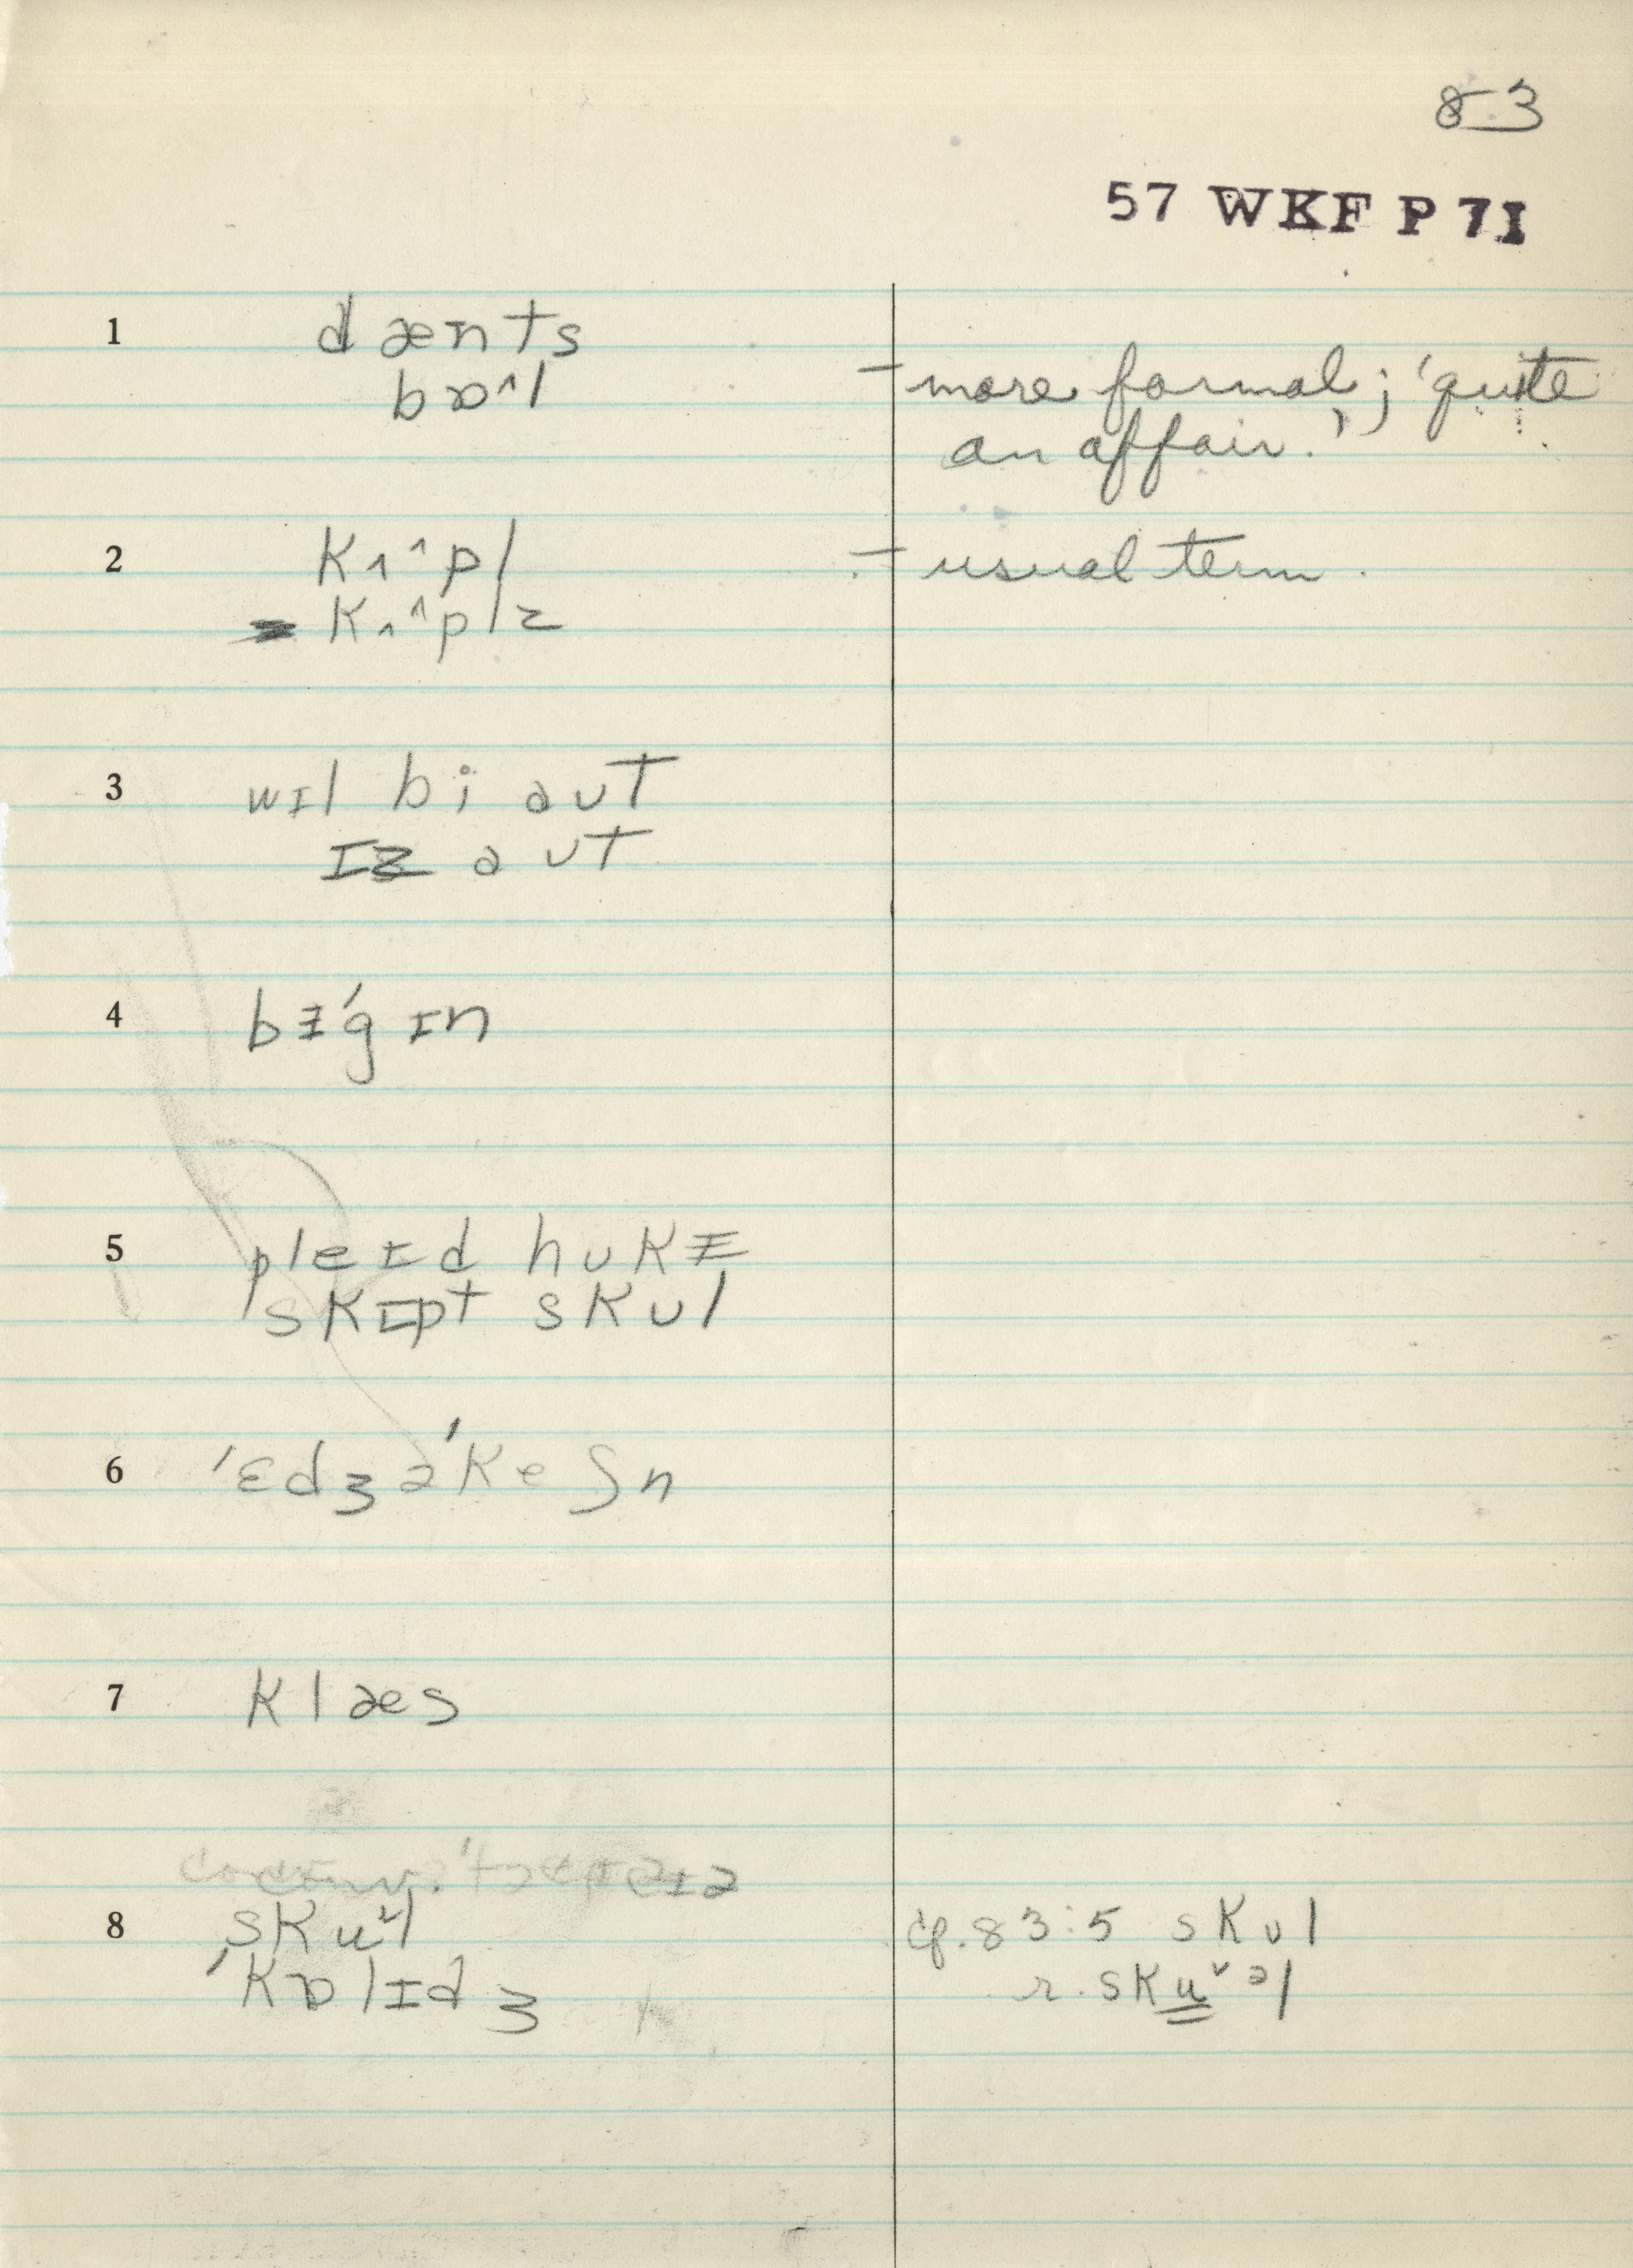 83
57 WKF P 7I
1 dænts
bɒ^l – more formal; 'quite
an affair.'
2 kʌ^pl – usual term.
kʌ^plz
3 wɪl bi aʊt
ɪz aʊt
4 bɨ'gɪn
5 pleɪd hʊkɨ
skɪpt skul
6 'ɛdʒə'keʃn
7 klæs
8 skuˇl cf. 83:5 skul
'kɒlɪdʒ r. skuˇəl